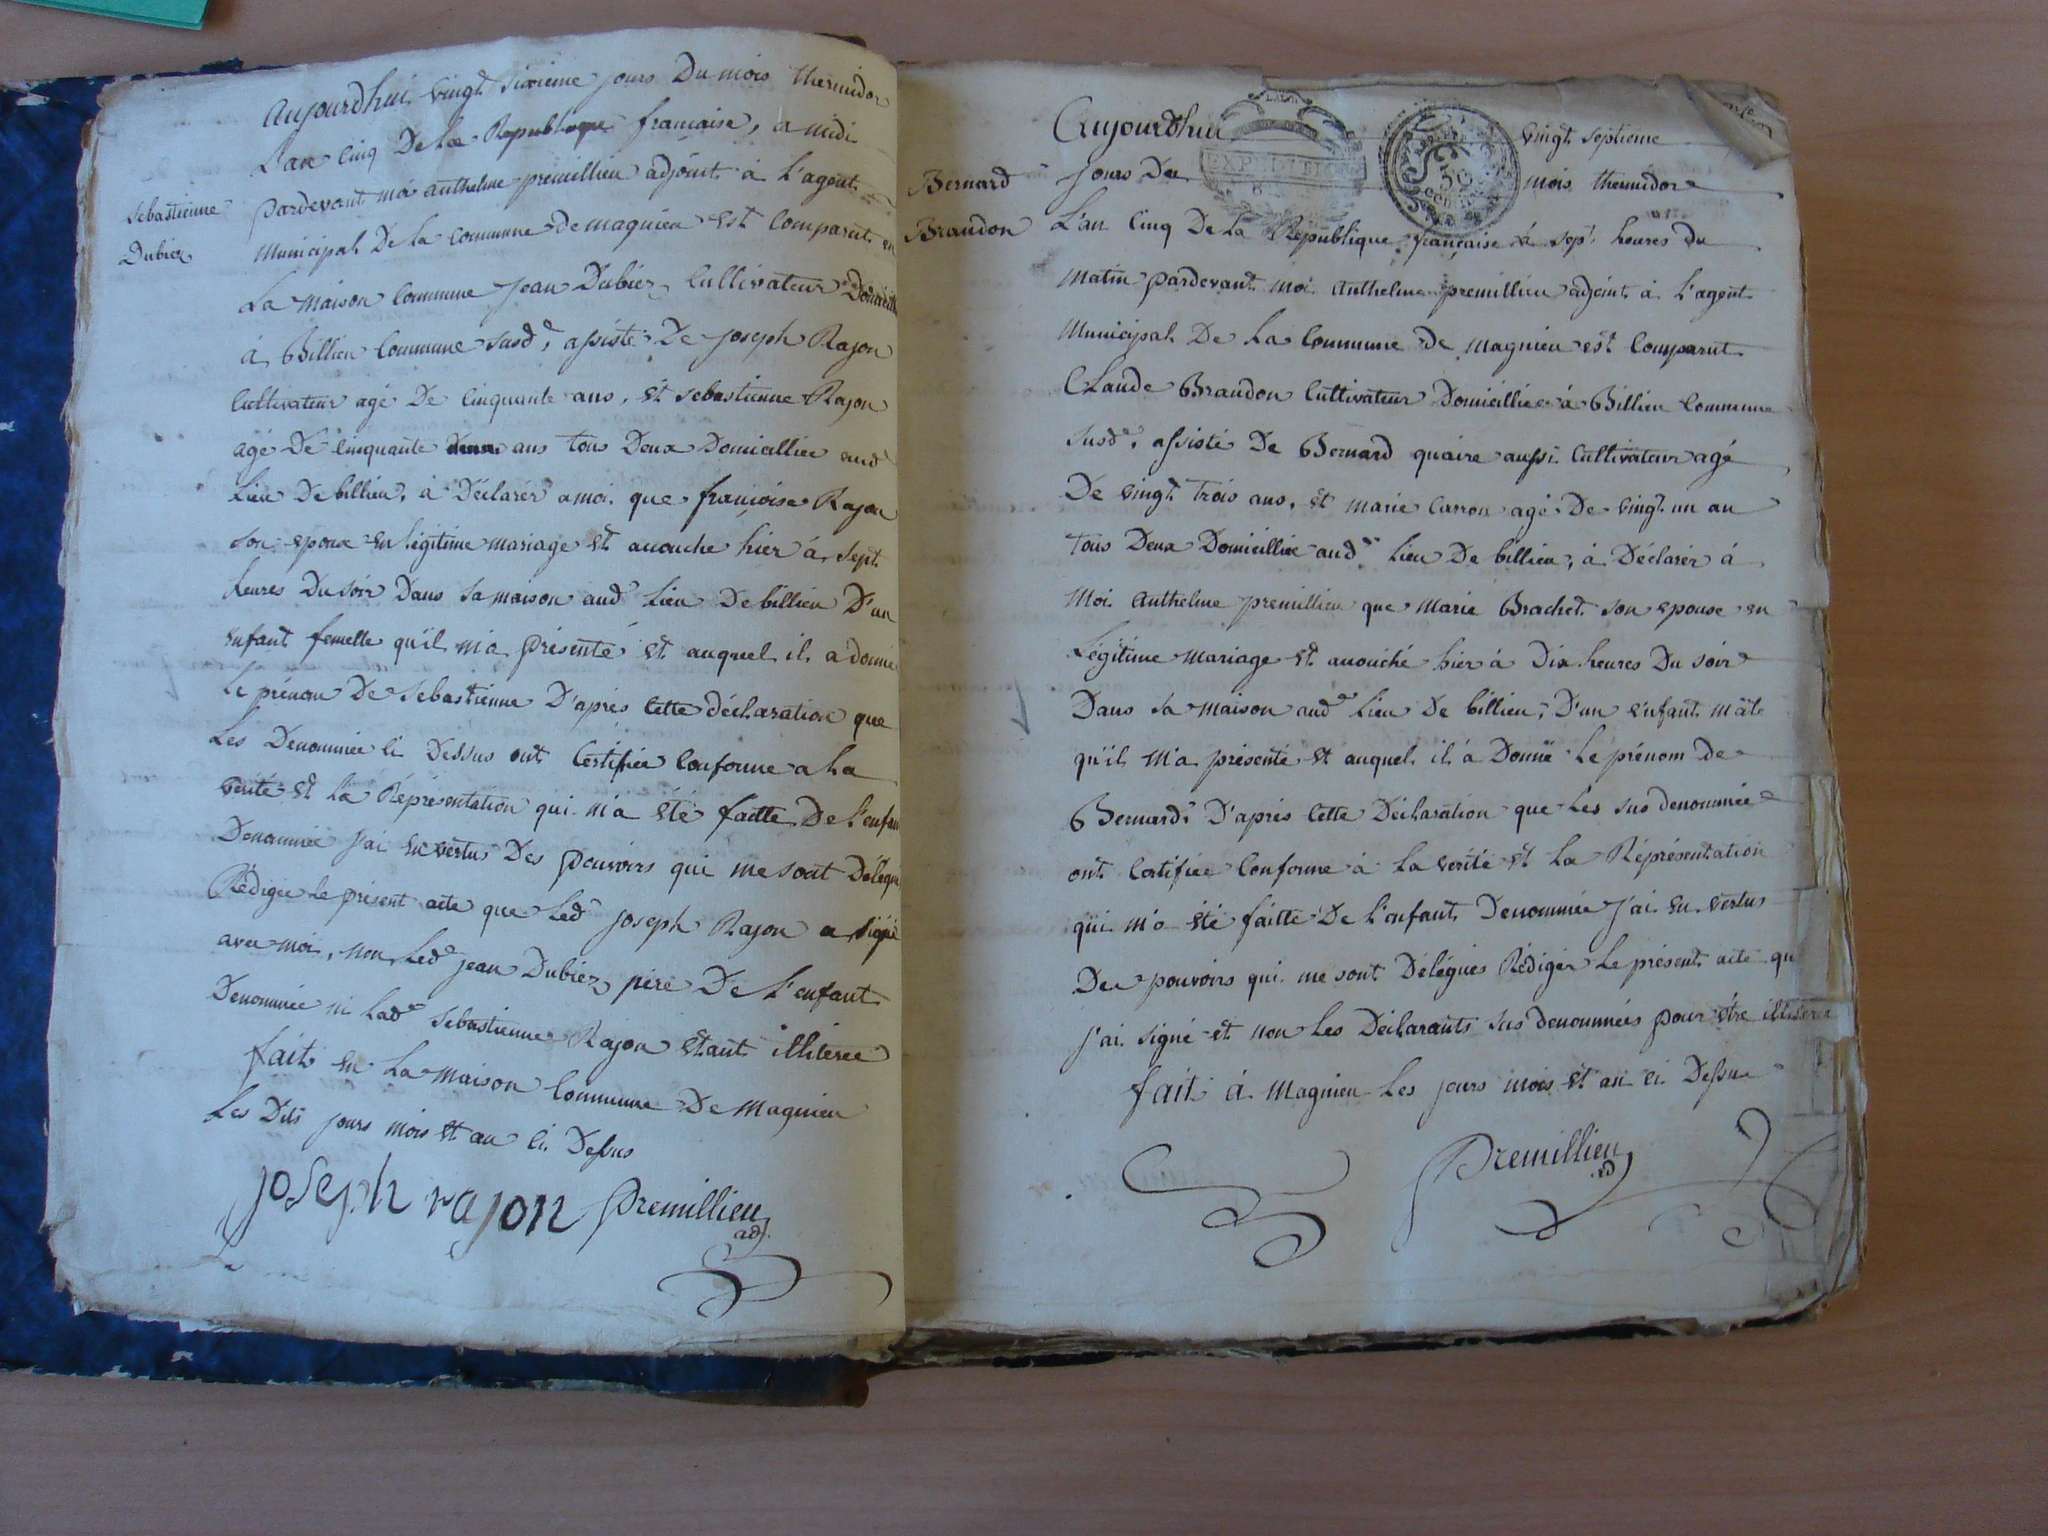 Aujourdhui vingt sixieme jours Du mois thermidor
L'an Cinq De La Republique francaise, a midi
pardevant moi anthelme premillieu adjoint à L'agent
Sebastienne
Dubiez
Municipal De La Commune de magnieu est Comparut en
La maison Commune Jean Dubiez Cultivateur Domeillie
à Billieu Commune susde, assisté De Joseph Rajon
Cultivateur agé De Cinquante ans, et sebastienne Rajon
agé De Cinquante deux ans tous Deux Domicillie aud
Lieu De billieu, à Déclarér a moi que francoise Rajon
son epouse en légitime mariage et acouche hier à sept
heures Du soir Dans sa maison aude Lieu De billieu D'un
enfant femelle quil m'a présenté et auquel il a donné
Le prénom De Sebastienne D'aprés Cette déclaration que
Les Denommée Ci Dessus ont Certifiée Conforme a La
verité et La Répresentation qui m'a été faitte De L'enfan
Denommée J'ai en vertus Des pouvoirs qui me sont Délégu
Rédigée Le présent acte que Led Joseph Rajon a signé
avec moi, non Lede Jean Dubiez pére De L'enfant
Denommée ni Lade Sebastienne Rajon etant illiteree
fait en La maison Commune De magnieu
Les Dits jours mois et an Ci Dessus
joseph rajon premillieu
adj.
Aujourdhui vingt septieme
Bernard
Brandon
Jours Du mois thermidor
L'an Cinq De La Republique française à sept heures du
matin pardevant moi anthelme premillieu adjoint à L'agent
Municipal De La Commune de magnieu est Comparut
Claude Brandon Cultivateur Domicillié à Billieu Commune
susde, assisté De Bernard quaire aussi Cultivateur agé
De vingt trois ans, et marie Carron agé De vingt un an
tous Deux Domicillie aude Lieu De billieu, à Déclarér à
moi anthelme premillieu que Marie Brachet son epouse en
Légitime mariage et acouché hier à Dix heures Du soir
Dans sa maison aude Lieu De billieu, D'un enfant mâle
qu'il m'a présenté et auquel il à Donné Le prénom de
Bernard, D'aprés Cette Déclaration que Les sus denommée
ont Certifiée Conforme à La verité et La Représentation
qui m'a été faitte De L'enfant Denommée J'ai en vertus
Des pouvoirs qui me sont Délégués Rédiger Le présent acte qu
j'ai signé et non Les Déclarants sus denommés pour être illiteree
fait à magnieu Les jours mois et an Ci Dessus
Premillieu
ad